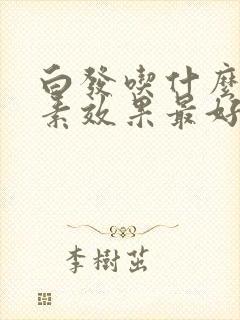 白發喫什麼
素效果最好
李樹茁